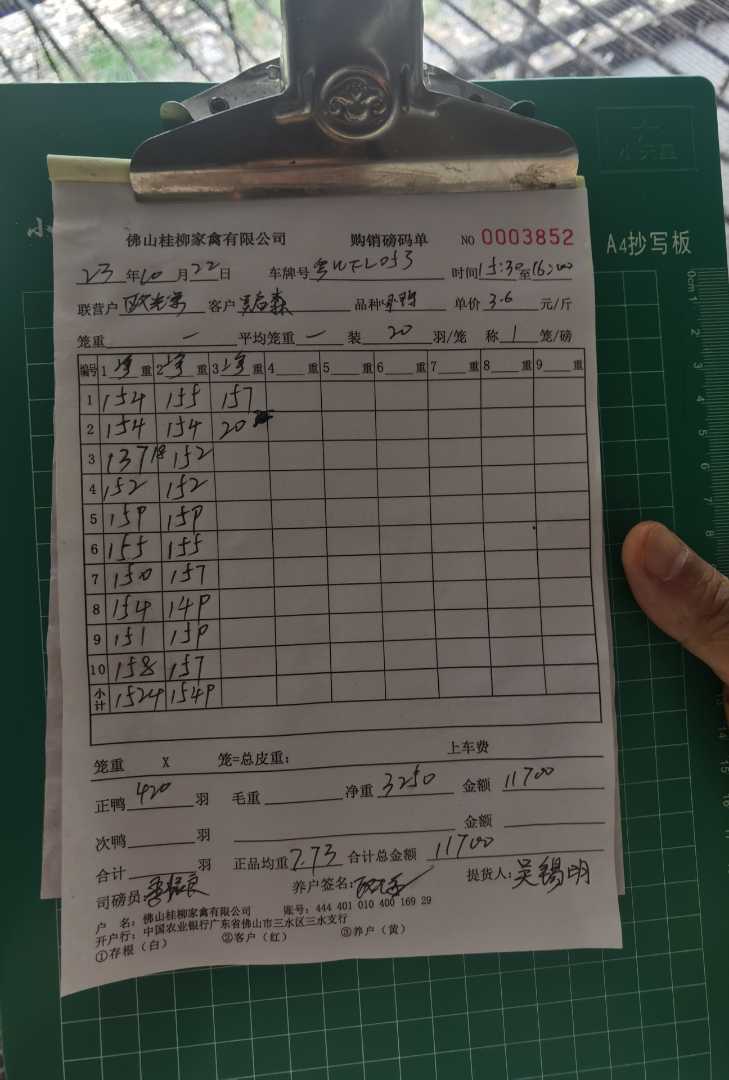 佛山桂柳家禽有限公司 购销磅码单 NO 0003852
A4抄写板
23年10月22日 车牌号 时间15:30至16:00
联营户 客户 品种 单价3.6元/斤
笼重 — 平均笼重 — 装 20 羽/笼 称 1 笼/磅
编号 1 重 2 重 3 重 4 重 5 重 6 重 7 重 8 重 9 重
1 154 155 157
2 154 154 20
3 137 18 152
4 152 152
5 159 159
6 155 155
7 150 157
8 154 149
9 151 159
10 158 157
小计 1524 1549
笼重 X 笼=总皮重: 上车费
正鸭 420 羽 毛重 净重 3250 金额 11700
次鸭 羽 金额
合计 羽 正品均重 7.73 合计总金额 11700
司磅员: 养户签名: 提货人: 吴锡明
户 名: 佛山桂柳家禽有限公司 账号: 444 401 010 400 169 29
开户行: 中国农业银行广东省佛山市三水区三水支行
①存根（白） ②客户（红） ③养户（黄）